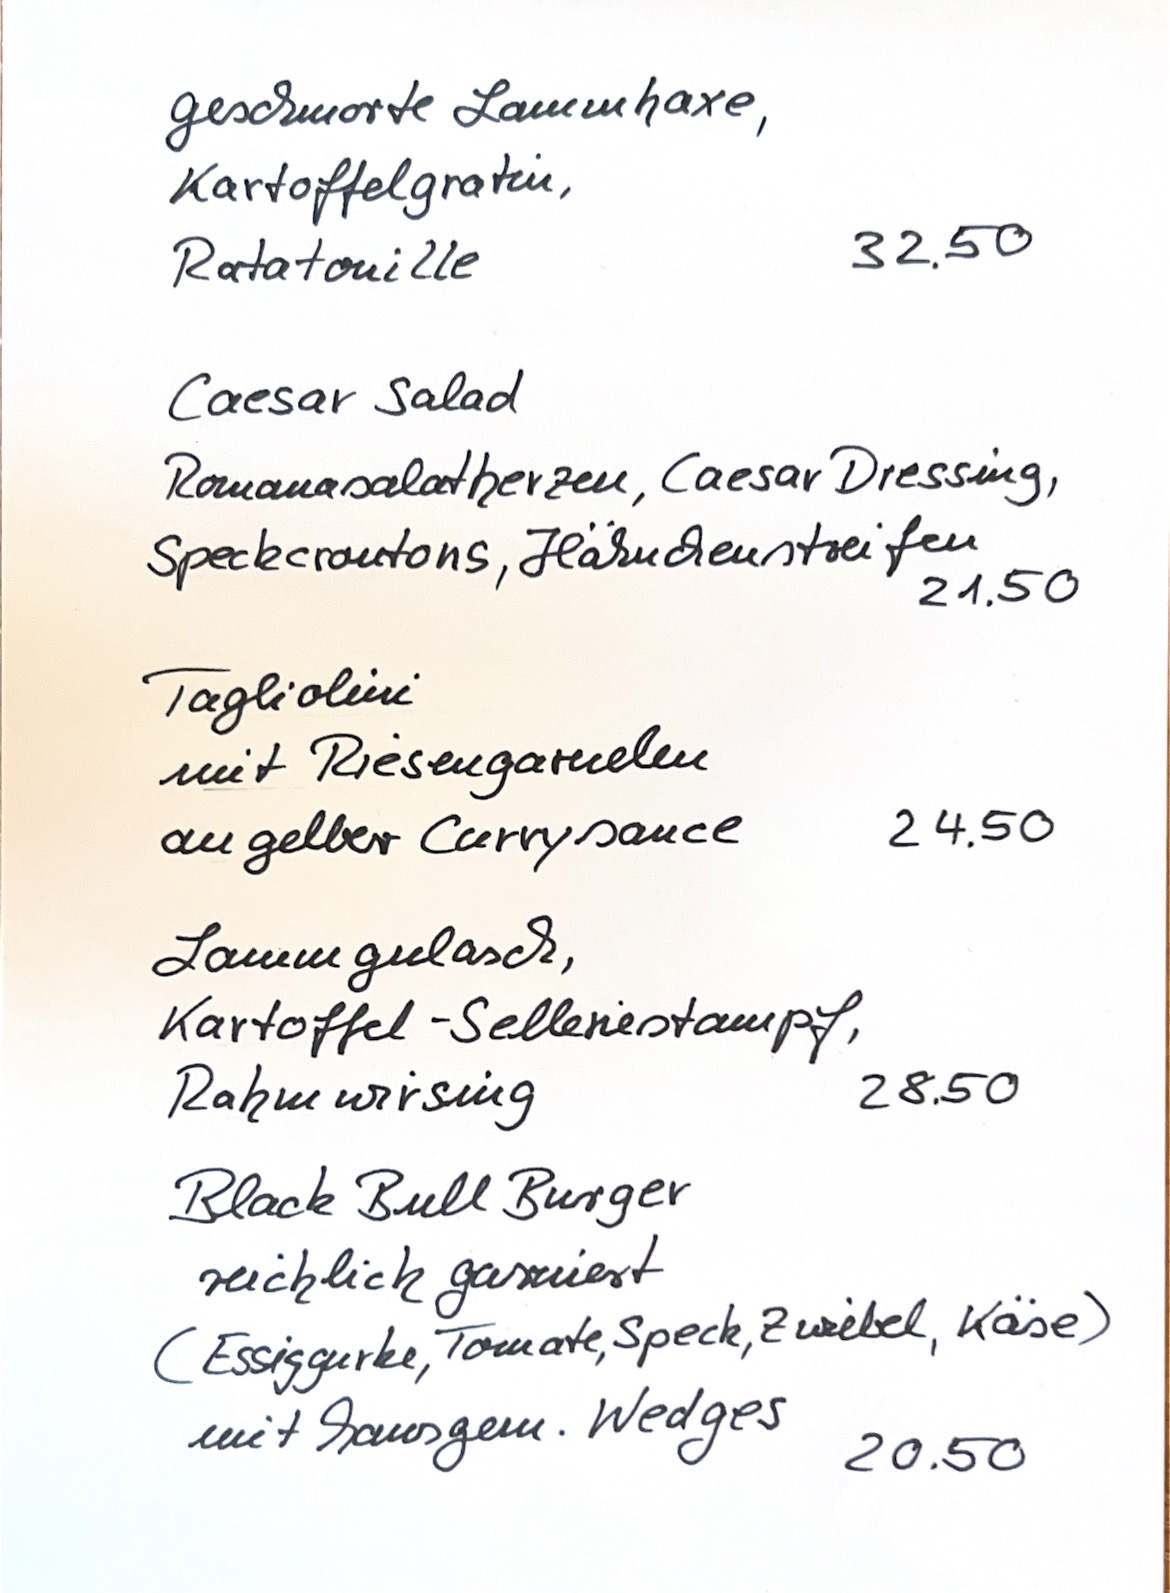 geschmorte Lammhaxe,
Kartoffelgratin,
Ratatouille 32.50
Caesar Salad
Romanasalatherzen, Caesar Dressing,
Speckcroutons, Hähnchenstreifen
21.50
Tagliolini
mit Riesengarnelen
an gelber Currysauce 24.50
Lammgulasch,
Kartoffel-Selleriestampf,
Rahmwirsing 28.50
Black Bull Burger
reichlich garniert
(Essiggurke, Tomate, Speck, Zwiebel, Käse)
mit hausgem. Wedges
20.50